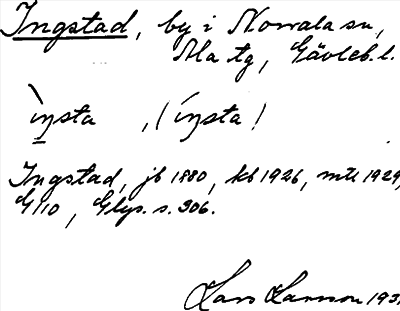 Ingstad, by i Norrala sn,
Ala tg, Gävleb. l.
ìŋsta , (íŋsta)
Ingstad, jb 1880, kb 1926, mtl 1929,
G110, Glys. s. 306.
Lars Larsson 193